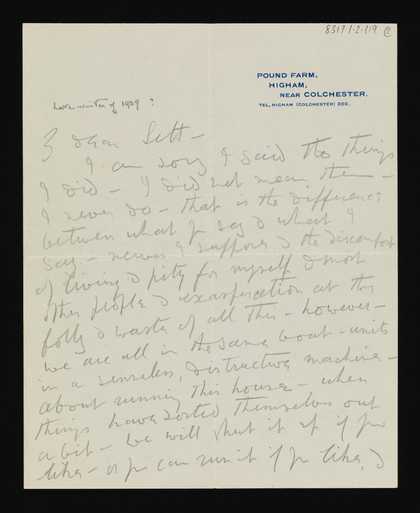 8317.1.2.119 C
POUND FARM,
HIGHAM,
NEAR COLCHESTER.
TEL. HIGHAM (COLCHESTER) 202.
winter of 1939 ?
dear
I am sorry I said the things
I did - I did not mean them -
I never do - that is the difference
between what you say & what I
say - nerves I suppose & the discomfort
of living & pity for myself & most
other people & exasperation at the
folly & waste of all this - however -
we are all in the same boat - units
in a senseless, destructive machine -
about running this house - when
things have sorted themselves out
a bit - we will shut it up if you
like - or you can run it if you like, &